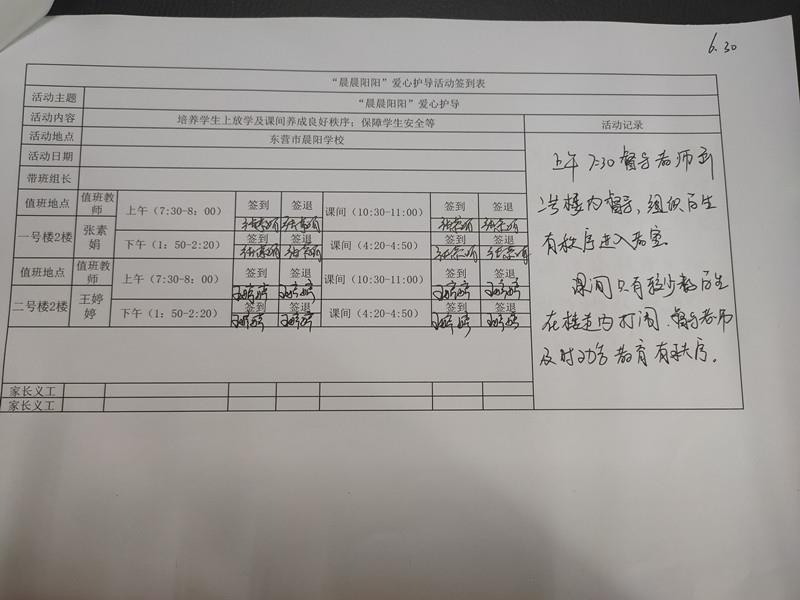 6.30
“晨晨阳阳”爱心护导活动签到表
活动主题 “晨晨阳阳”爱心护导
活动内容 培养学生上放学及课间养成良好秩序；保障学生安全等 活动记录
活动地点 东营市晨阳学校
活动日期
带班组长
值班地点 值班教师 上午（7:30-8：00） 签到 签退 课间（10:30-11:00） 签到 签退
张素娟 张素娟 张素娟 张素娟
一号楼2楼 张素娟 下午（1：50-2:20） 签到 签退 课间（4:20-4:50） 签到 签退
张素娟 张素娟 张素娟 张素娟
值班地点 值班教师 上午（7:30-8：00） 签到 签退 课间（10:30-11:00） 签到 签退
王婷婷 王婷婷 王婷婷 王婷婷
二号楼2楼 王婷婷 下午（1：50-2:20） 签到 签退 课间（4:20-4:50） 签到 签退
王婷婷 王婷婷 王婷婷 王婷婷
家长义工
家长义工
上午7:30督导老师到
号楼内督导，组织学生
有秩序进入教室
课间只有较少数学生
在楼道内打闹，督导老师
及时劝告教育有秩序。